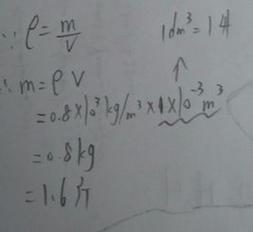 ∵ ρ = m/v
1dm³ = 1升
∴ m = ρ V
↑
= 0.8×10³kg/m³ × 1×10⁻³m³
= 0.8kg
= 1.6斤